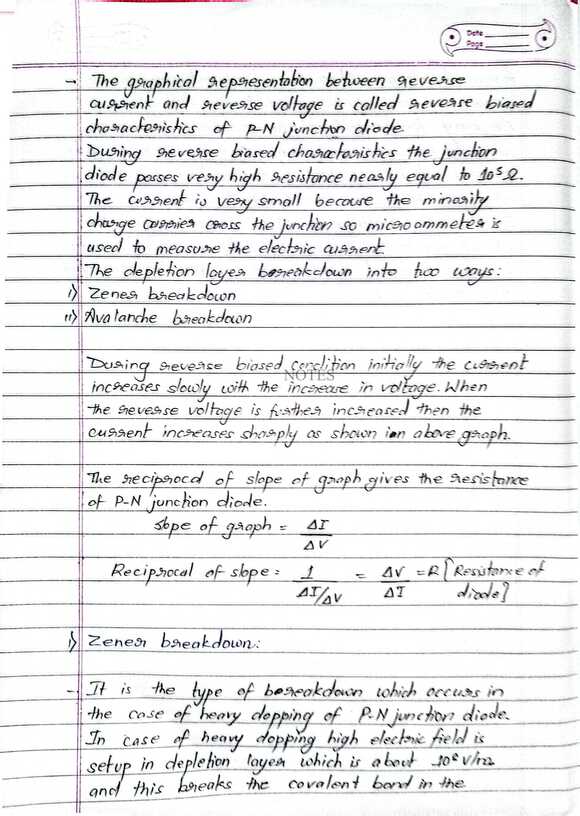 Date
Page
→ The graphical representation between reverse
current and reverse voltage is called reverse biased
characteristics of P-N junction diode.
During reverse biased characteristics the junction
diode posses very high resistance nearly equal to 10⁵Ω.
The current is very small because the minority
charge carrier cross the junction so micro ammeter is
used to measure the electric current.
The depletion layer breakdown into two ways:
i) Zener breakdown
ii) Avalanche breakdown
During reverse biased condition initially the current
NOTES
increases slowly with the increase in voltage. When
the reverse voltage is further increased then the
current increases sharply as shown in above graph.
The reciprocal of slope of graph gives the resistance
of P-N junction diode.
Slope of graph = ΔI/ΔV
Reciprocal of slope = 1/(ΔI/ΔV) = ΔV/ΔI = R [Resistance of
diode]
i) Zener breakdown:
- It is the type of breakdown which occurs in
the case of heavy dopping of P-N junction diode.
In case of heavy dopping high electric field is
setup in depletion layer which is about 10⁶ V/m
and this breaks the covalent bond in the